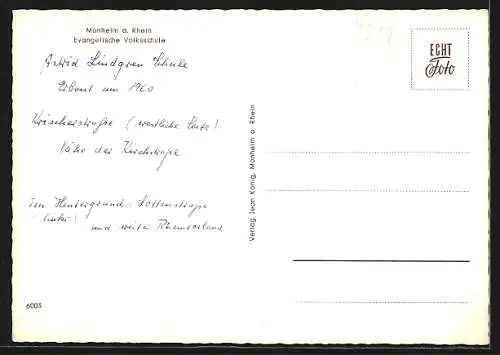 Monheim a. Rhein
Evangelische Volksschule
Astrid Lindgren Schule
Erbaut um 1960
Krischerstraße (westliche Seite)
Nähe der Kirchstraße
Im Hintergrund: Lottenstraße
(links) und weiter Rheinvorland
6005
Verlag Jean König, Monheim a. Rhein
ECHT
Foto